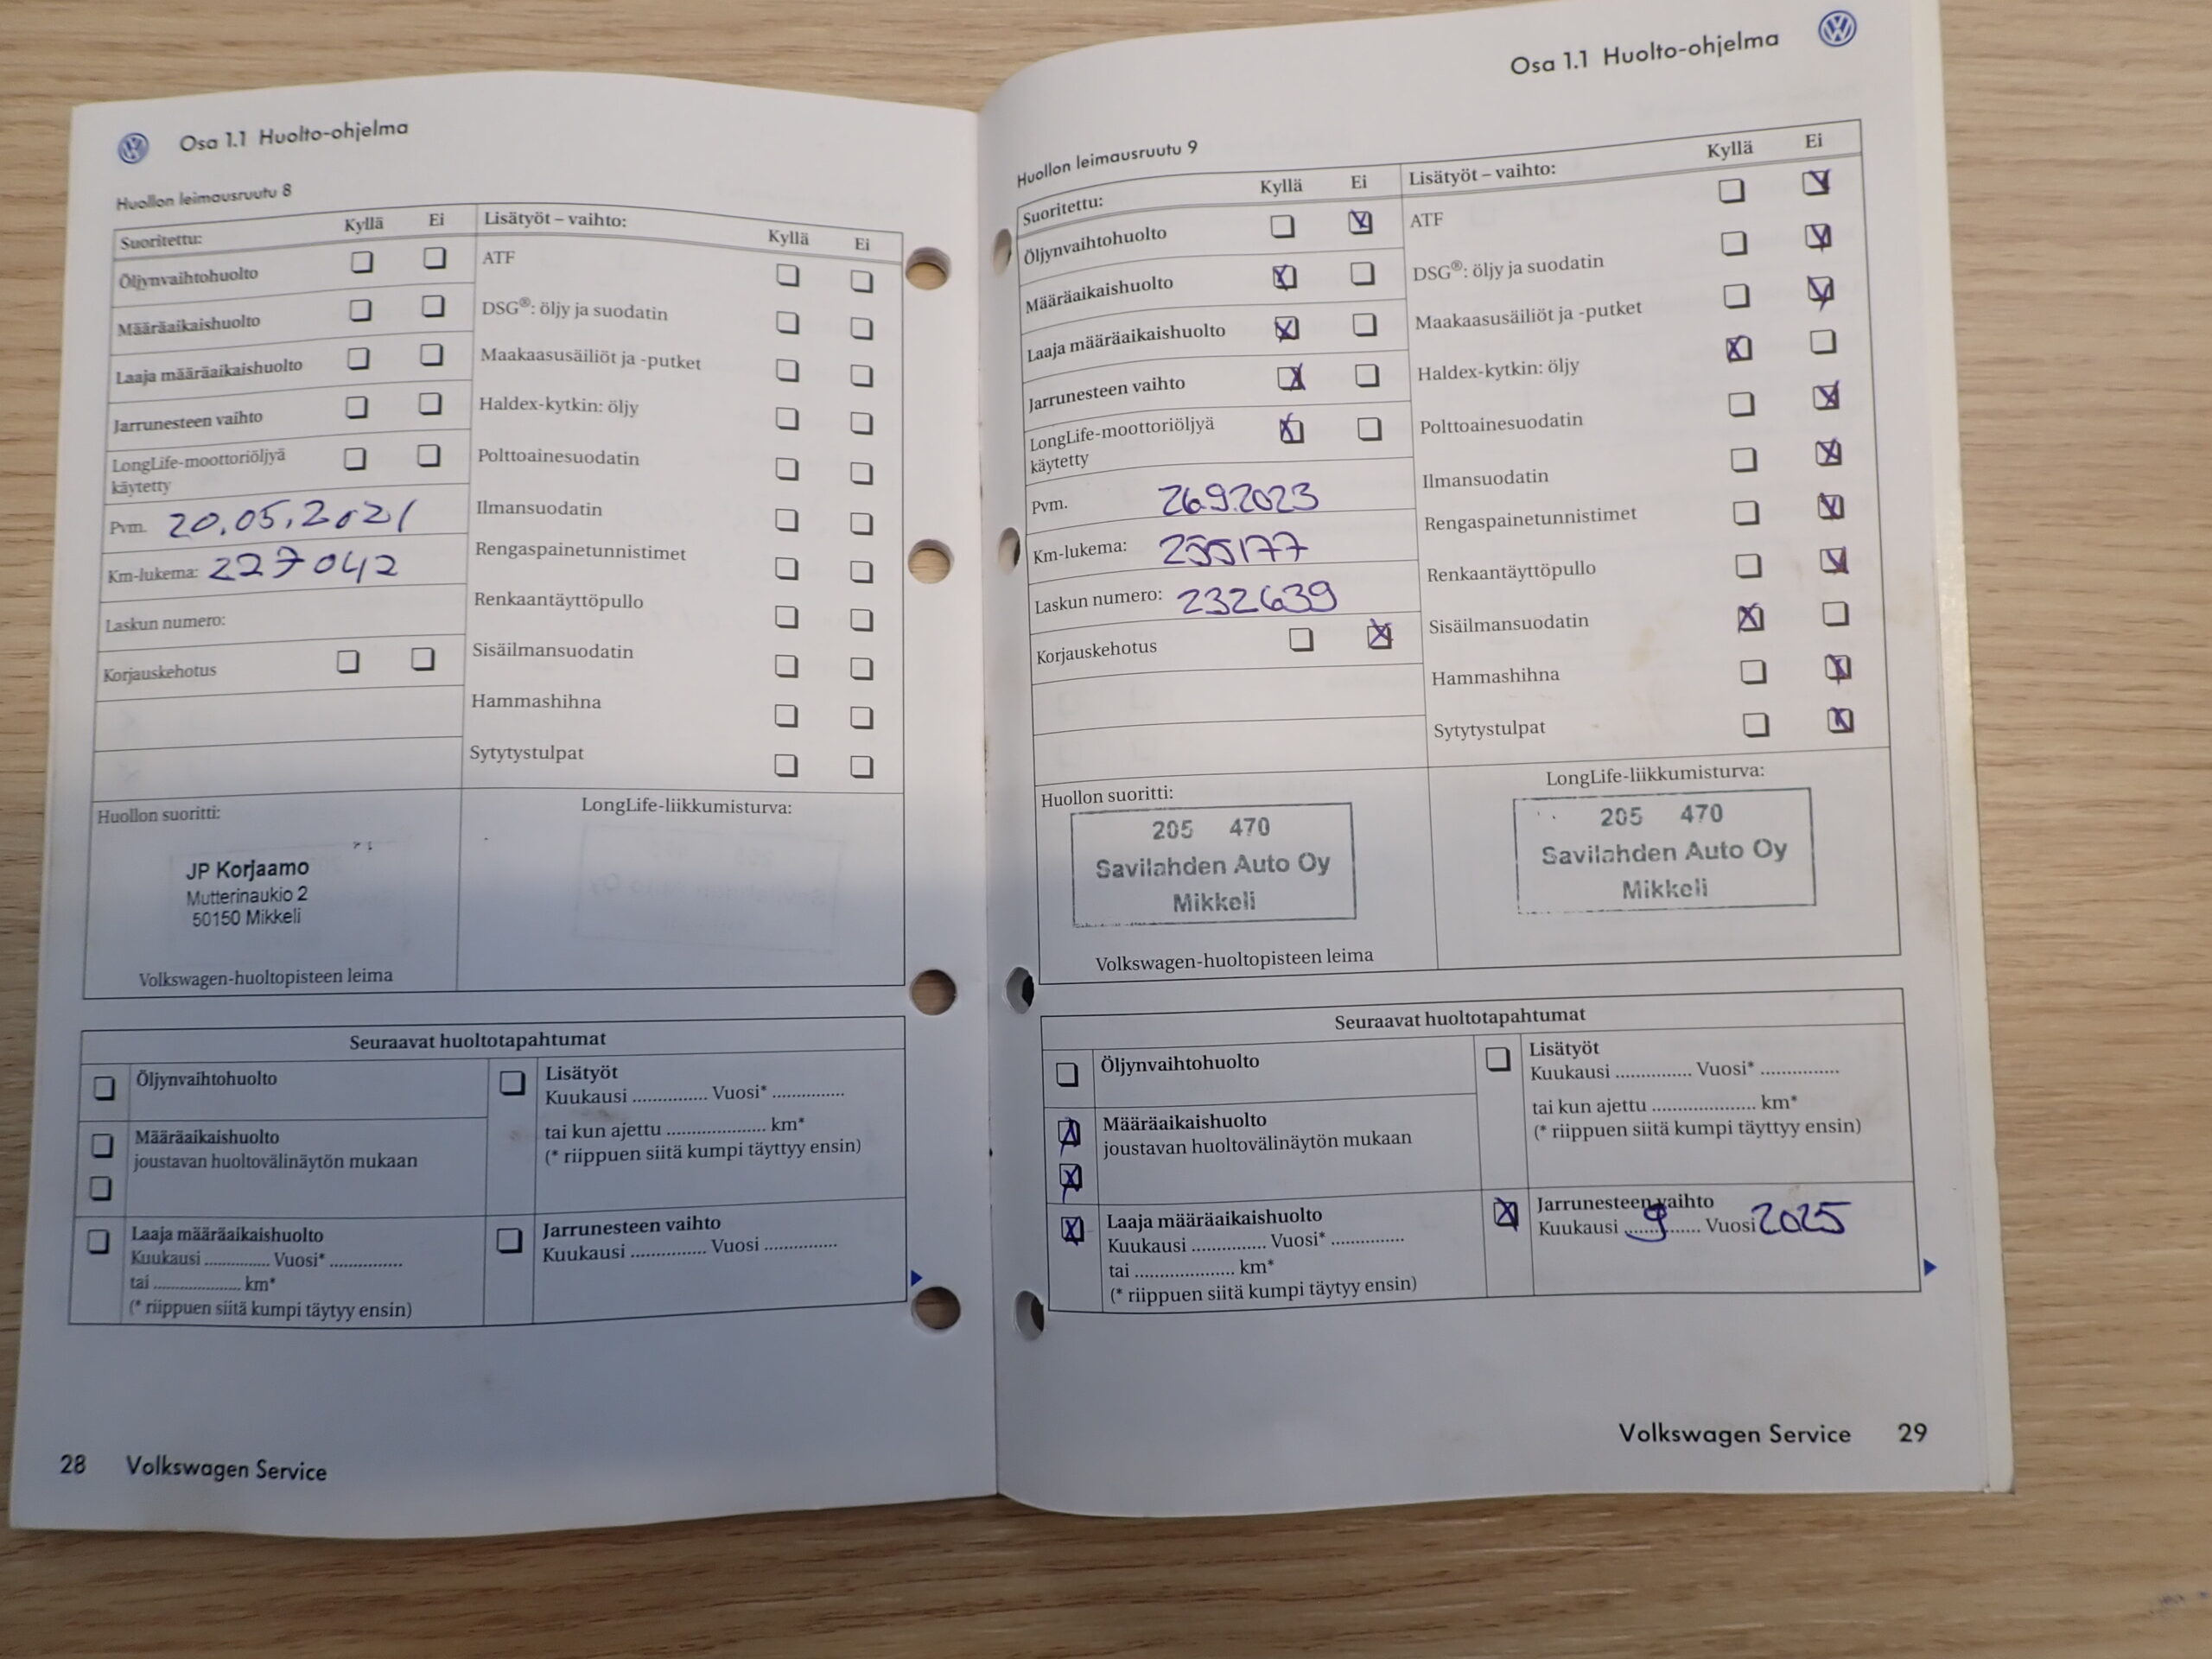 Osa 1.1 Huolto-ohjelma
Huollon leimausruutu 8
Suoritettu: Kyllä Ei
Öljynvaihtohuolto
Määräaikaishuolto
Laaja määräaikaishuolto
Jarrunesteen vaihto
LongLife-moottoriöljyä
käytetty
Pvm. 20.05.2021
Km-lukema: 227042
Laskun numero:
Korjauskehotus
Lisätyöt – vaihto: Kyllä Ei
ATF
DSG®: öljy ja suodatin
Maakaasusäiliöt ja -putket
Haldex-kytkin: öljy
Polttoainesuodatin
Ilmansuodatin
Rengaspainetunnistimet
Renkaantäyttöpullo
Sisäilmansuodatin
Hammashihna
Sytytystulpat
Huollon suoritti:
JP Korjaamo
Mutterinaukio 2
50150 Mikkeli
Volkswagen-huoltopisteen leima
LongLife-liikkumisturva:
Seuraavat huoltotapahtumat
Öljynvaihtohuolto
Määräaikaishuolto
joustavan huoltovälinäytön mukaan
Laaja määräaikaishuolto
Kuukausi .............. Vuosi* ...............
tai .................... km*
(* riippuen siitä kumpi täytyy ensin)
Lisätyöt
Kuukausi ............... Vuosi* ...............
tai kun ajettu .................... km*
(* riippuen siitä kumpi täyttyy ensin)
Jarrunesteen vaihto
Kuukausi ............... Vuosi ...............
28 Volkswagen Service
Osa 1.1 Huolto-ohjelma
Huollon leimausruutu 9
Suoritettu: Kyllä Ei
Öljynvaihtohuolto
Määräaikaishuolto
Laaja määräaikaishuolto
Jarrunesteen vaihto
LongLife-moottoriöljyä
käytetty
Pvm. 26.9.2023
Km-lukema: 255177
Laskun numero: 232639
Korjauskehotus
Lisätyöt – vaihto: Kyllä Ei
ATF
DSG®: öljy ja suodatin
Maakaasusäiliöt ja -putket
Haldex-kytkin: öljy
Polttoainesuodatin
Ilmansuodatin
Rengaspainetunnistimet
Renkaantäyttöpullo
Sisäilmansuodatin
Hammashihna
Sytytystulpat
Huollon suoritti:
205 470
Savilahden Auto Oy
Mikkeli
Volkswagen-huoltopisteen leima
LongLife-liikkumisturva:
205 470
Savilahden Auto Oy
Mikkeli
Seuraavat huoltotapahtumat
Öljynvaihtohuolto
Määräaikaishuolto
joustavan huoltovälinäytön mukaan
Laaja määräaikaishuolto
Kuukausi ............... Vuosi* ...............
tai .................... km*
(* riippuen siitä kumpi täytyy ensin)
Lisätyöt
Kuukausi ............... Vuosi* ...............
tai kun ajettu .................... km*
(* riippuen siitä kumpi täyttyy ensin)
Jarrunesteen vaihto
Kuukausi 9 Vuosi 2025
Volkswagen Service 29